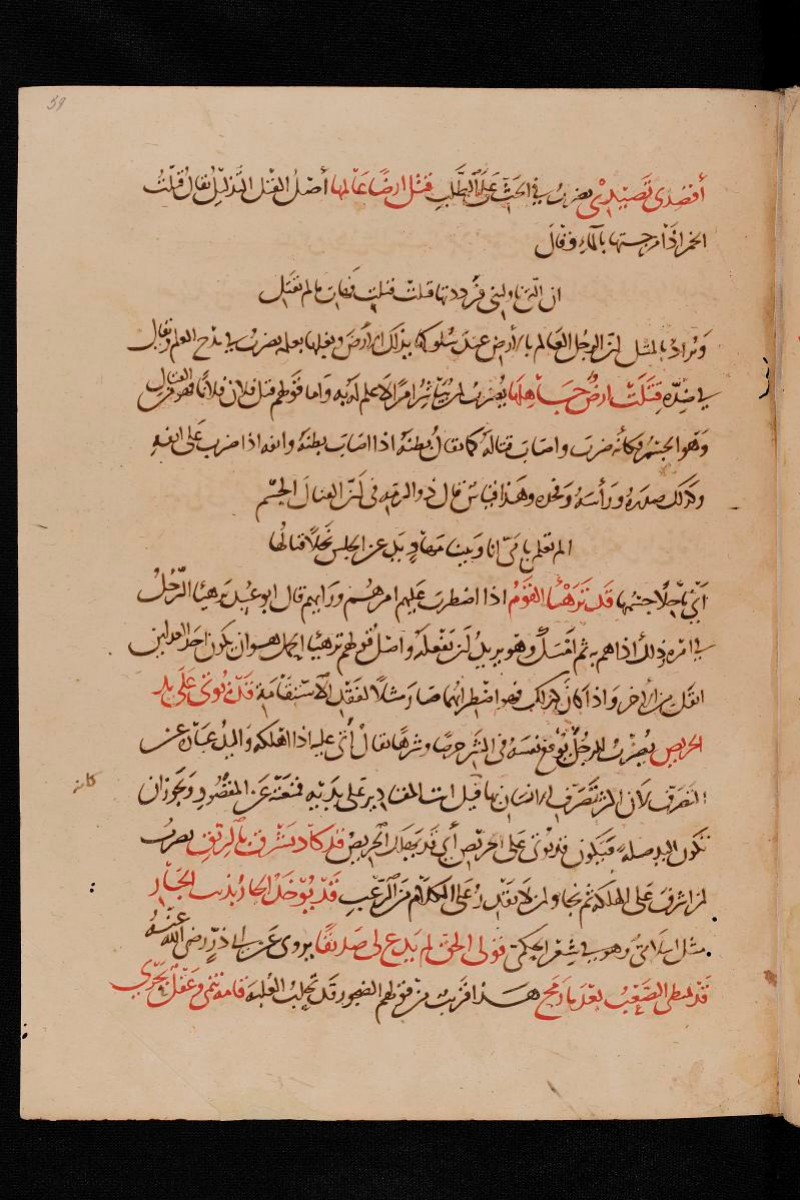 59
أقصدى تصيدى يضرب في الحث على الطلب قتل ارضا عالمها أصل القتل التذليل يقال قتلت
الخمر اذا مزجتها بالماء وقال
ان التى ناولتنى فرددتها قتلت قتلت فهاتها لم تقتل
ويراد بالمثل ان الرجل العالم بالارض عند سلوكها يذلل الارض ويغلبها بعلمه يضرب في مدح العلم ويقال
في ضده قتلت ارض جاهلها يضرب لمن يباشر امرا لا علم له به واما قولهم قتل فلان فلانا فهو من القتال
وهو الجسم فكأنه ضرب واصاب قتاله كما يقال بطنه اذا اصاب بطنه وانفه اذا ضرب على انفه
وكذلك صدره ورأسه وفخذه وهذا قياس قال ذو الرمة فى ان القتال الجسم
الم تعلمى يا مى انا وبيننا مهاو يدعن الجلس نحلا قتالها
أي ناحلا جسمها قد ترهيأ القوم اذا اضطرب عليهم امرهم ورايهم قال ابو عبيد ترهيأ الرجل
في امره ذلك اذا هم به ثم امسك وهو يريد ان يفعله واصل قولهم ترهيأ الحمل هو ان يكون احد العدلين
اثقل من الآخر واذا كان كذلك فهو اضطرابهما صار مثلا لفقد الاستقامة قد يؤتى على يد
الحريص يضرب للرجل يوقع نفسه فى الشر حرصا وشرها يقال أتى عليه اذا اهلكه واليد عبارة عن
التصرف لان اكثر تصرف الانسان بها قيل اتت المقادير على يديه فمنعته عن المقصود ويجوز ان
كانه
تكون اليد صلة فيكون قد يؤتى على الحريص أي قد يهلك الحريص قد كاد يشرق بالريق يضرب
لمن اشرف على الهلكة ثم نجا ولمن لا يقدر على الكلام من الرعب قد يؤخذ الجار بذنب الجار
مثل اسلامى وهو في شعر الحكمى قولى الحق لم يدع لى صديقا يروى عن ابى ذر رضى الله عنه
قد يمطى الصعب بعد ما رمح هذا قريب من قولهم الضجور قد تحلب العلبة قامة تنمى وعقل يحرى